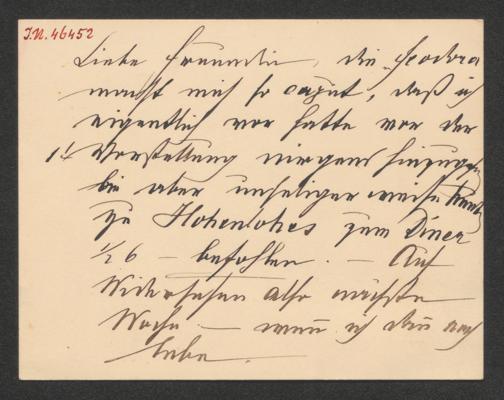 J.N. 46452
Liebe Freundin, die Feodora
macht mich so caput, daß ich
eigentlich vor hatte vor der
Vorstellung nirgens hinzugehn
bin aber unseliger weise heute
zu Hohenlohes zum Diner
1/2 6 – befohlen. – Auf
Widersehen also nächste
Woche – wenn ich dann noch
lebe.